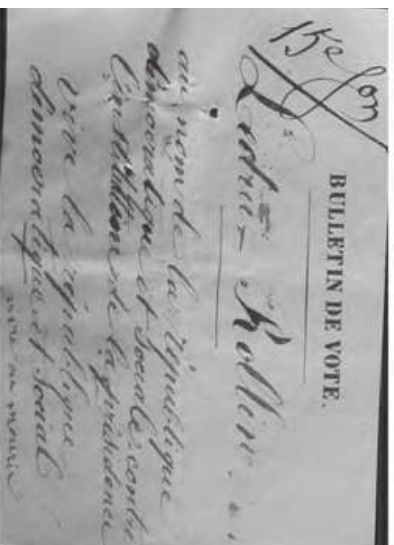 15e Son
BULLETIN DE VOTE.
Ledru-Rollin
au nom de la république
démocratique et Sociale contre
l'institution de la présidence
vive la république
démocratique et Social
vivre ou mourir